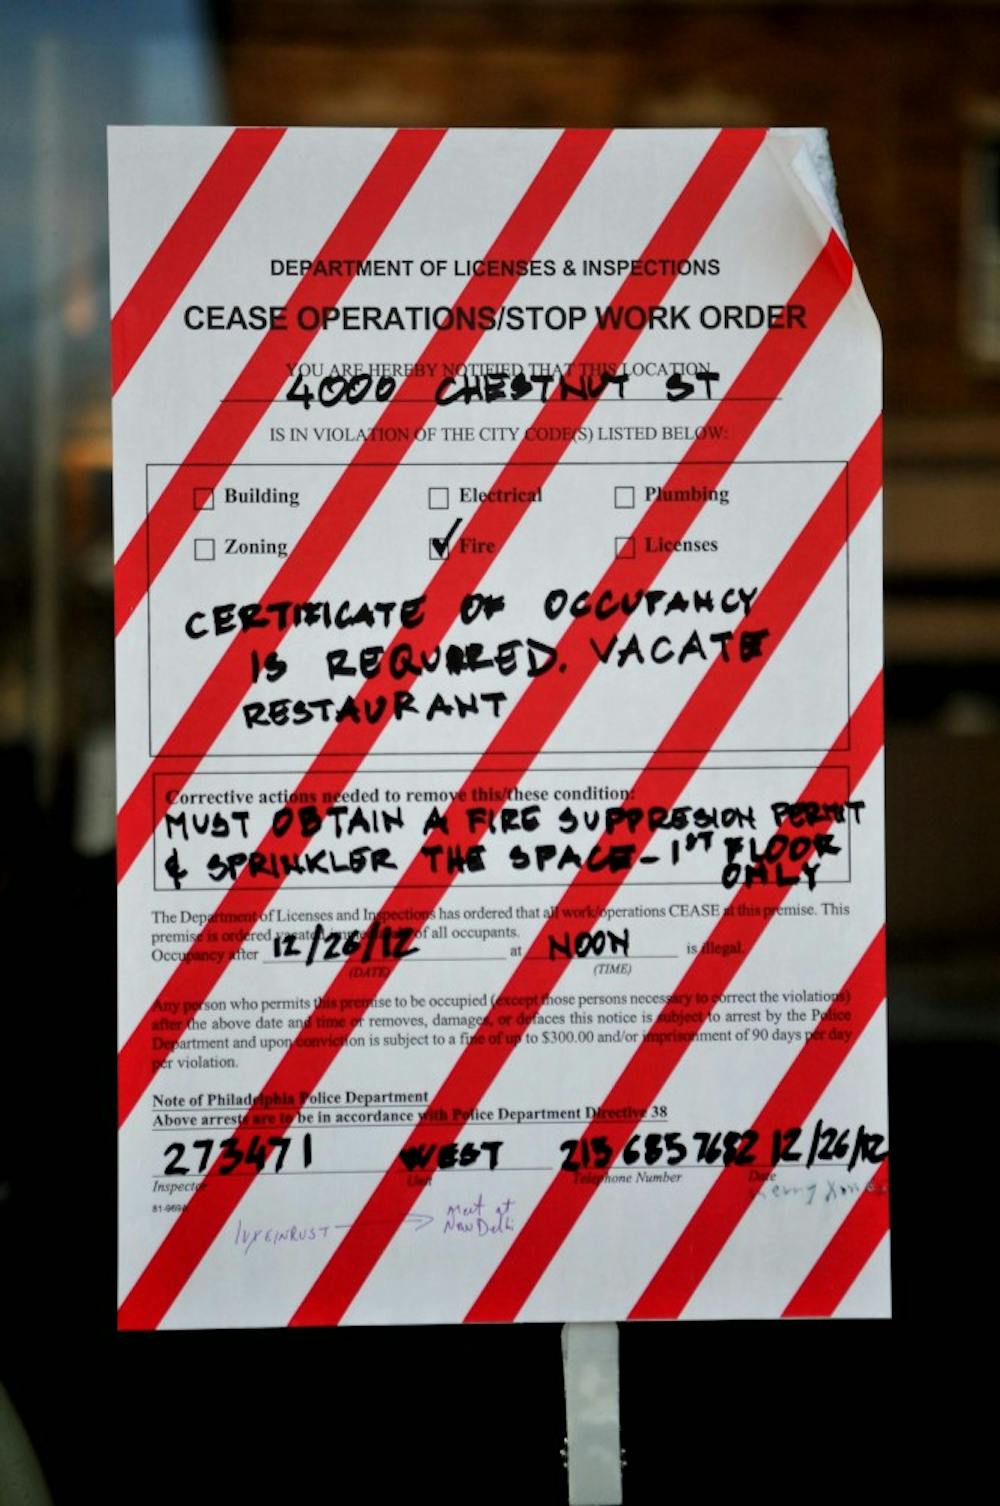 DEPARTMENT OF LICENSES & INSPECTIONS
CEASE OPERATIONS/STOP WORK ORDER
YOU ARE HEREBY NOTIFIED THAT THIS LOCATION
4000 CHESTNUT ST
IS IN VIOLATION OF THE CITY CODE(S) LISTED BELOW:
Building Electrical Plumbing
Zoning Fire Licenses
CERTIFICATE OF OCCUPANCY
IS REQUIRED. VACATE
RESTAURANT
Corrective actions needed to remove this/these condition:
MUST OBTAIN A FIRE SUPPRESION PERMIT
& SPRINKLER THE SPACE - 1ST FLOOR
ONLY
The Department of Licenses and Inspections has ordered that all work/operations CEASE at this premise. This
premise is ordered of all occupants.
Occupancy after 12/26/12 at NOON is illegal.
(DATE) (TIME)
Any person who permits this premise to be occupied (except those persons necessary to correct the violations)
after the above date and time or removes, damages, or defaces this notice is subject to arrest by the Police
Department and upon conviction is subject to a fine of up to $300.00 and/or imprisonment of 90 days per day
per violation.
Note of Philadelphia Police Department
Above arrests are to be in accordance with Police Department Directive 38
273471 WEST 215 685 7682 12/26/12
Inspector Unit Telephone Number Date
meet at
New Delhi